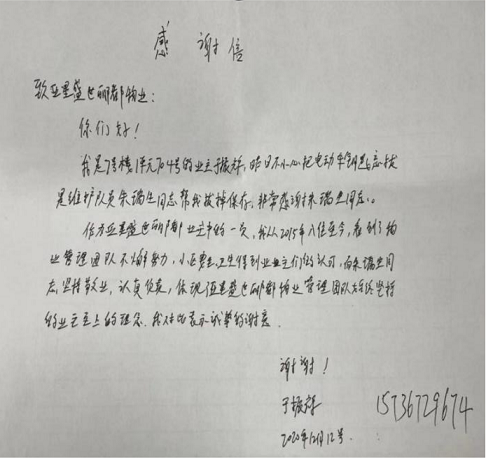 感谢信
致亚星盛世丽都物业：
你们好！
我是7号楼1单元704号的业主于振辉，昨日不小心把电动车钥匙忘拔
是维护队员朱瑞生同志帮我拔掉保存，非常感谢朱瑞生同志。
作为亚星盛世丽都业主中的一员，我从2015年入住至今，看到了物
业管理团队不懈努力，小区卫生得到业主们的认可，而朱瑞生同
志坚持敬业，认真负责，体现亚星盛世丽都物业管理团队始终坚持
的业主至上的理念。我在此表示诚挚的谢意。
谢谢！
于振辉
15736729674
2020年12月12号.